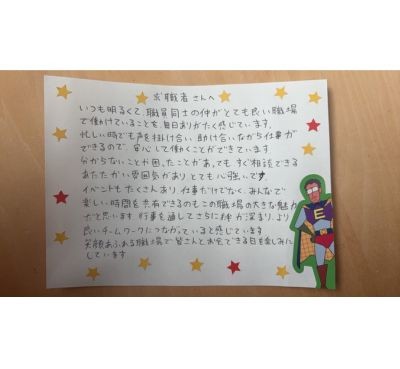 求職者さんへ
いつも明るくて、職員同士の仲がとても良い職場
で働けていることを、毎日ありがたく感じています。
忙しい時でも声を掛け合い、助け合いながら仕事が
できるので、安心して働くことができています。
分からないことや困ったことがあってもすぐ相談できる
あたたかい雰囲気があり、とても心強いです。
イベントもたくさんあり、仕事だけでなく、みんなで
楽しい時間を共有できるのもこの職場の大きな魅力
だと思います。行事を通してさらに絆が深まり、より
良いチームワークにつながっていると感じています。
笑顔あふれる職場で皆さんとお会できる日を楽しみに
しています
E